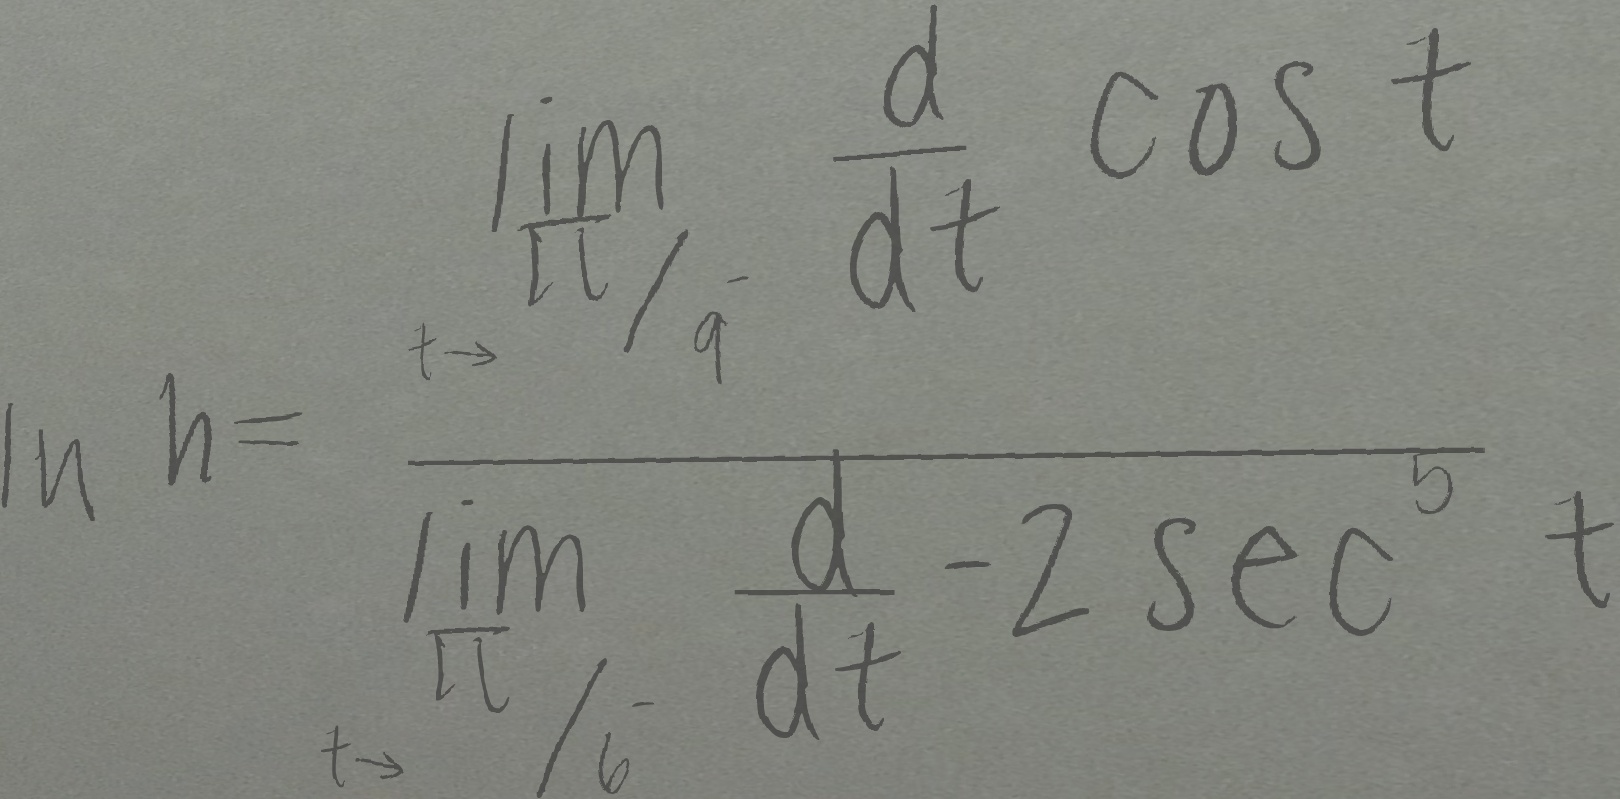 ln h = \frac{\lim_{t \to \pi/9^-} \frac{d}{dt} \cos t}{\lim_{t \to \pi/6^-} \frac{d}{dt} -2 \sec^5 t}